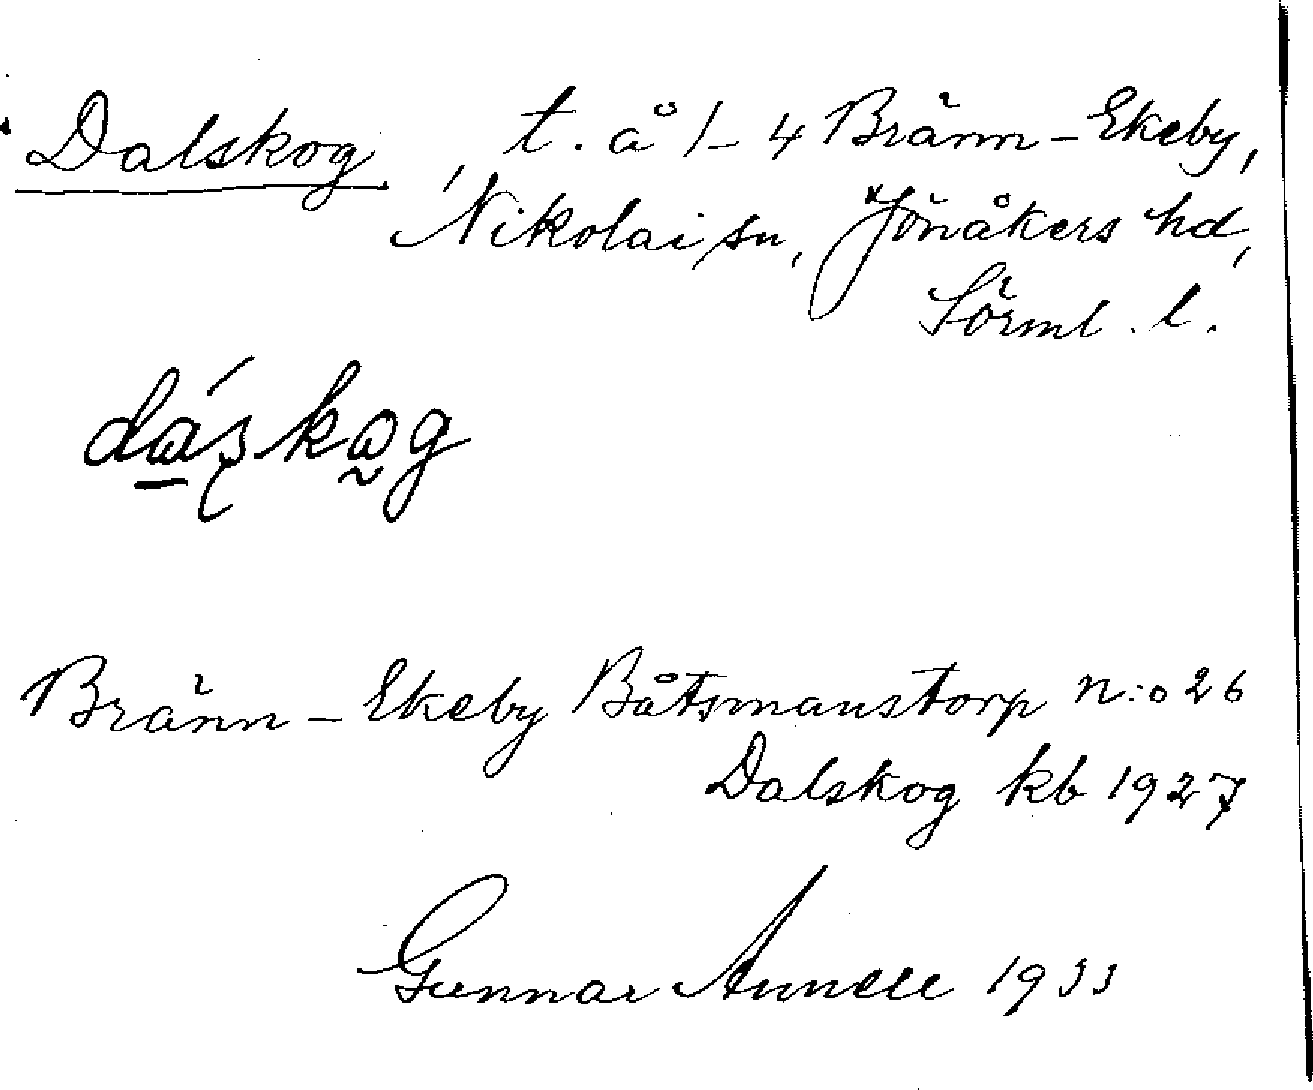 Dalskog, t. å 1–4 Bränn-Ekeby,
Nikolai sn, Jönåkers hd,
Sörml. l.
Bränn-Ekeby Båtsmanstorp n:o 26
Dalskog kb 1927
Gunnar 1933